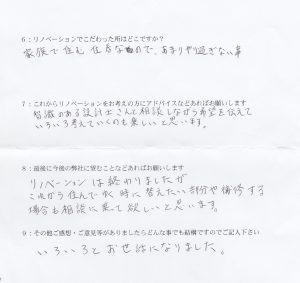 6:リノベーションでこだわった所はどこですか?
家族で住む住居なもので、あまりやり過ぎない事
7:これからリノベーションをお考えの方にアドバイスなどあればお願いします
知識のある設計士さんと相談しながら希望を伝えて
いろいろ考えていくのも楽しいと思います。
8:最後に今後の弊社に望むことなどあればお願いします
リノベーションは終わりましたが
これから住んで行く時に替えたい部分や補修する
場合も相談に乗って欲しいと思います。
9:その他ご感想・ご意見等がありましたらどんな事でも結構ですのでご記入下さい
いろいろとお世話になりました。